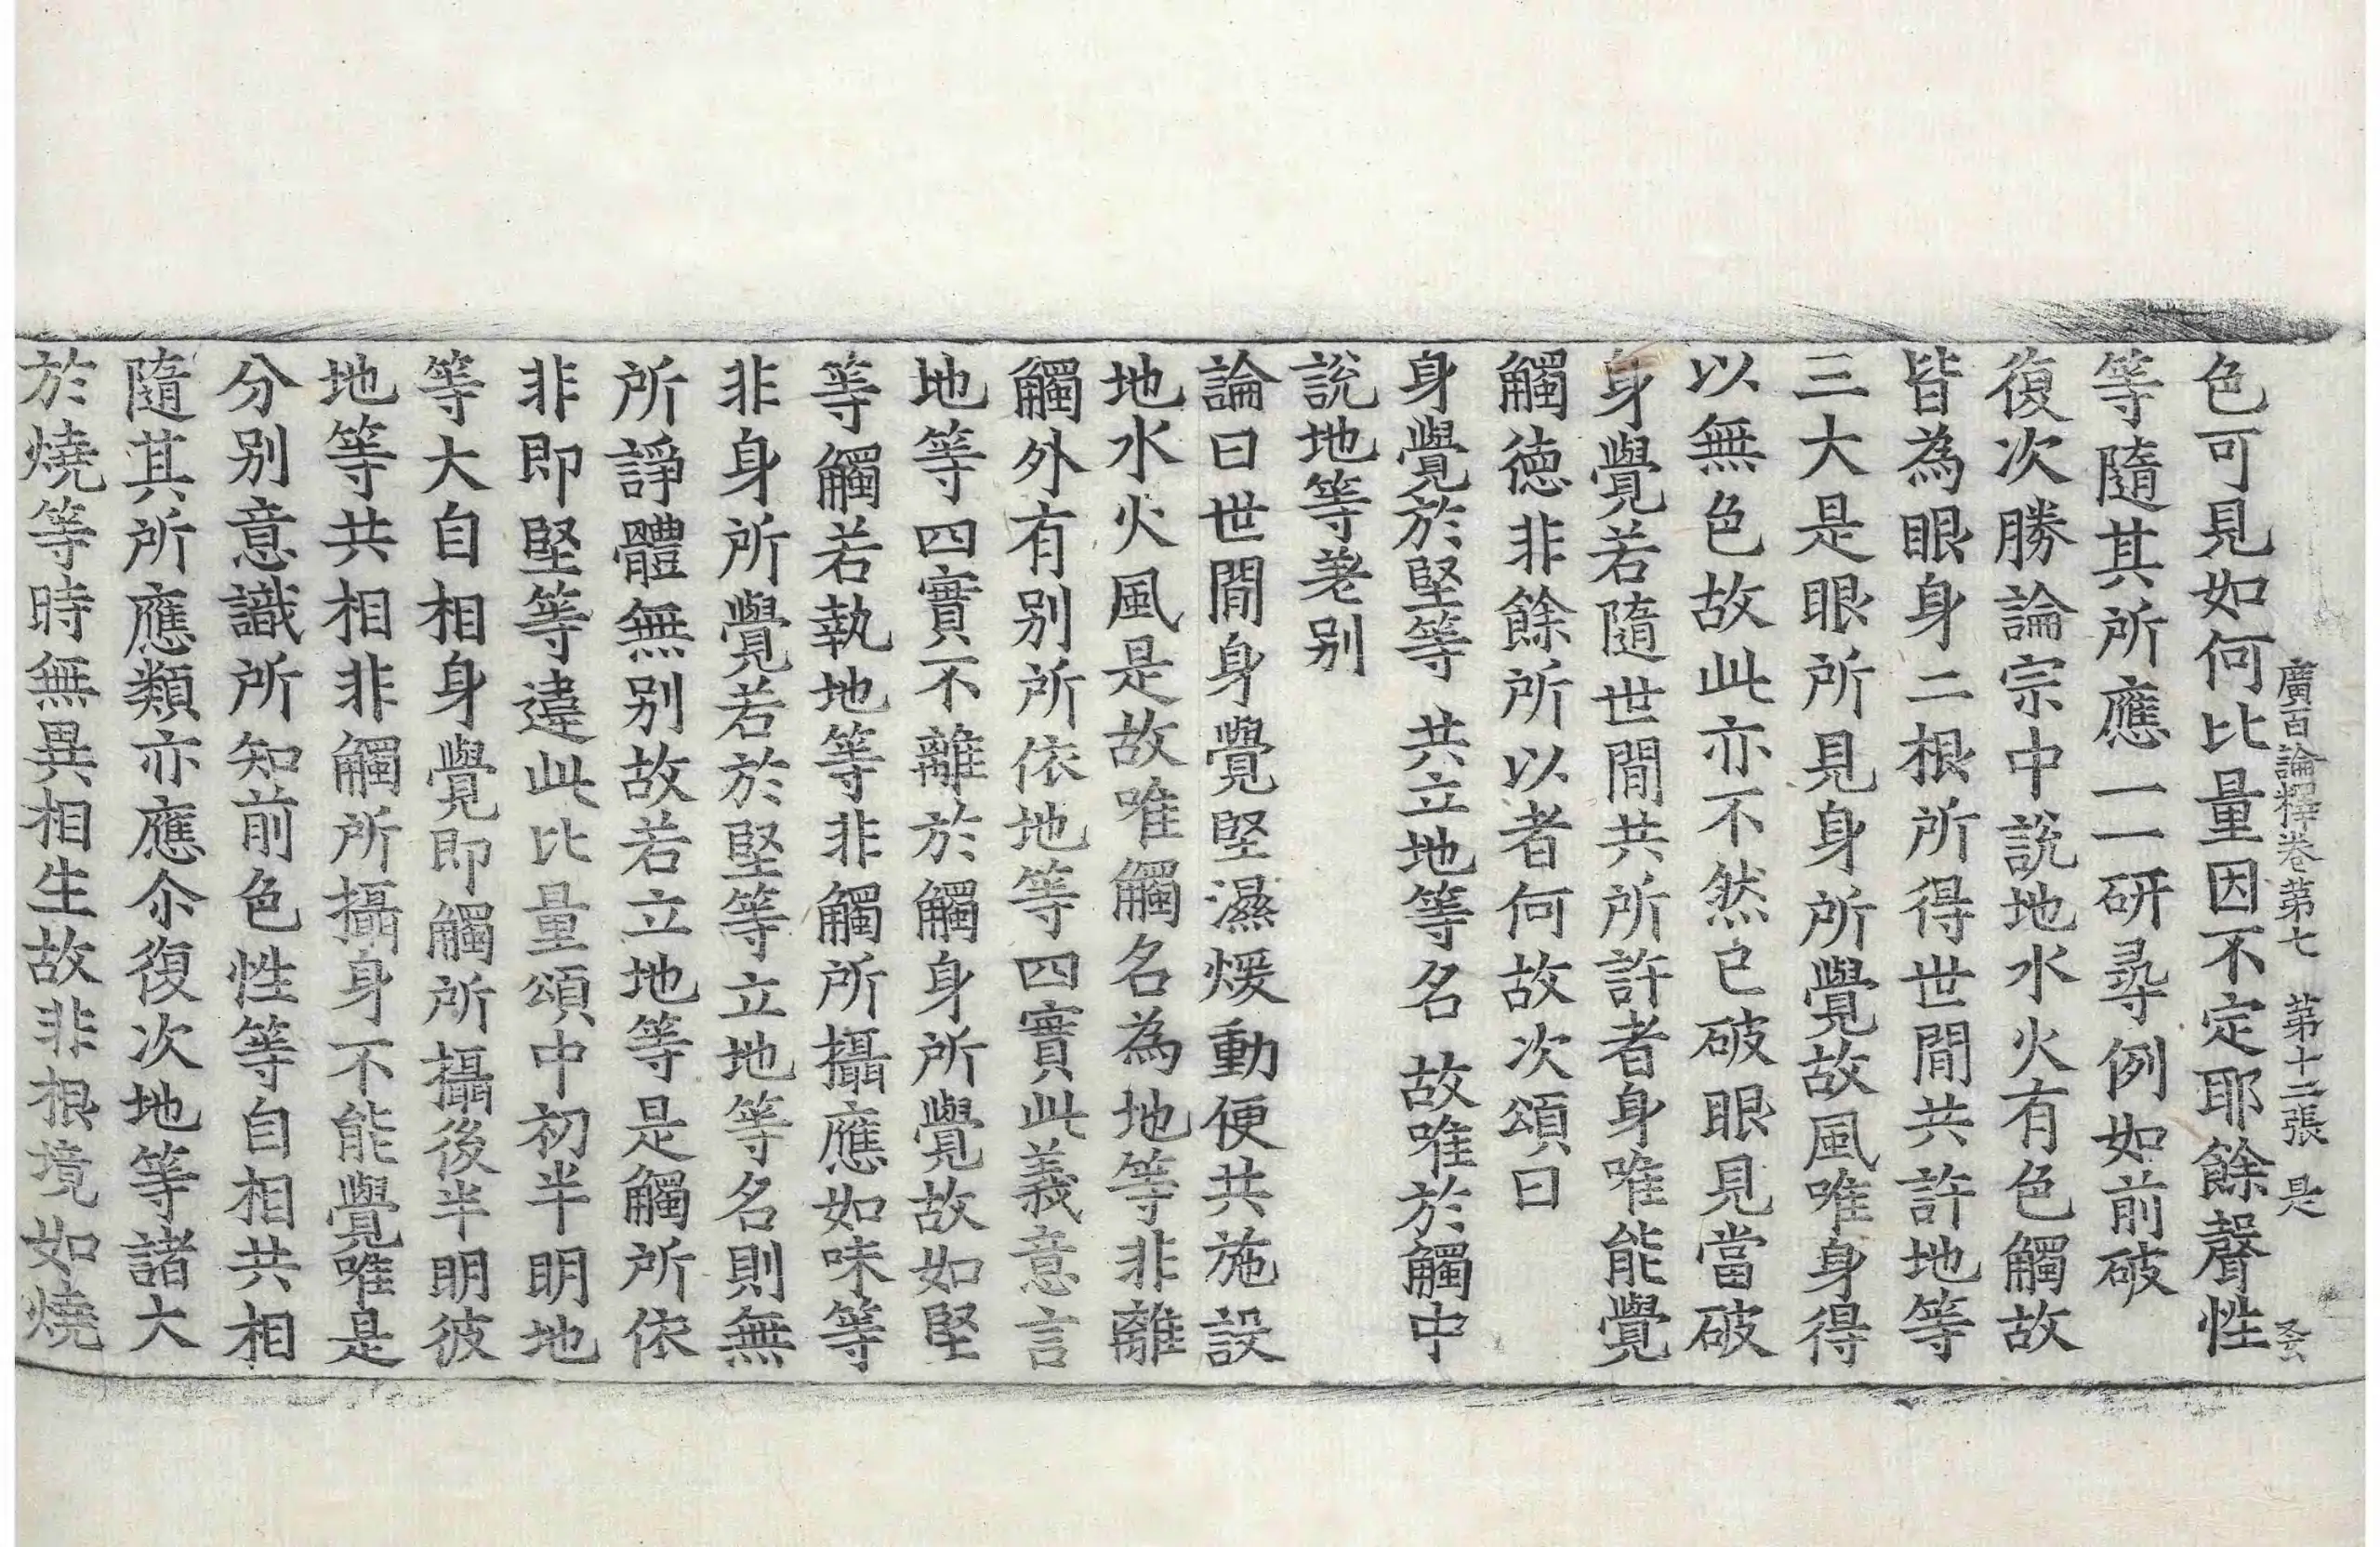 廣百論釋卷第七 第十二張 是
色可見如何比量因不定耶餘聲性
等隨其所應一一研尋例如前破
復次勝論宗中說地水火有色觸故
皆為眼身二根所得世閒共許地等
三大是眼所見身所覺故風唯身得
以無色故此亦不然已破眼見當破
身覺若隨世閒共所許者身唯能覺
觸德非餘所以者何故次頌曰
身覺於堅等 共立地等名 故唯於觸中
說地等差别
論曰世閒身覺堅濕煖動便共施設
地水火風是故唯觸名為地等非離
觸外有别所依地等四實此義意言
地等四實不離於觸身所覺故如堅
等觸若執地等非觸所攝應如味等
非身所覺若於堅等立地等名則無
所諍體無别故若立地等是觸所依
非即堅等違此比量頌中初半明地
等大自相身覺即觸所攝後半明彼
地等共相非觸所攝身不能覺唯是
分别意識所知前色性等自相共相
隨其所應類亦應尒復次地等諸大
於燒等時無異相生故非根境如燒